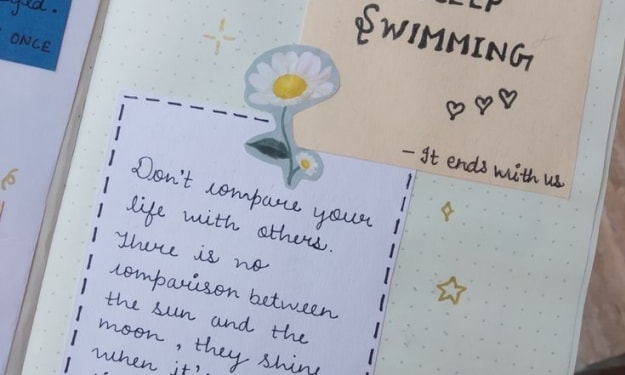 ONCE
SWIMMING
– It ends with us
Don't compare your
life with others.
There is no
comparison between
the sun and the
moon, they shine
when it's